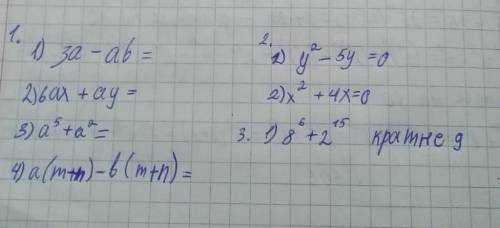 1.
1) 3a - ab =
2) 6ax + ay =
3) a⁵ + a² =
4) a(m+n) - b(m+n) =
2.
1) y² - 5y = 0
2) x² + 4x = 0
3. 1) 8⁶ + 2¹⁵ кратне 9